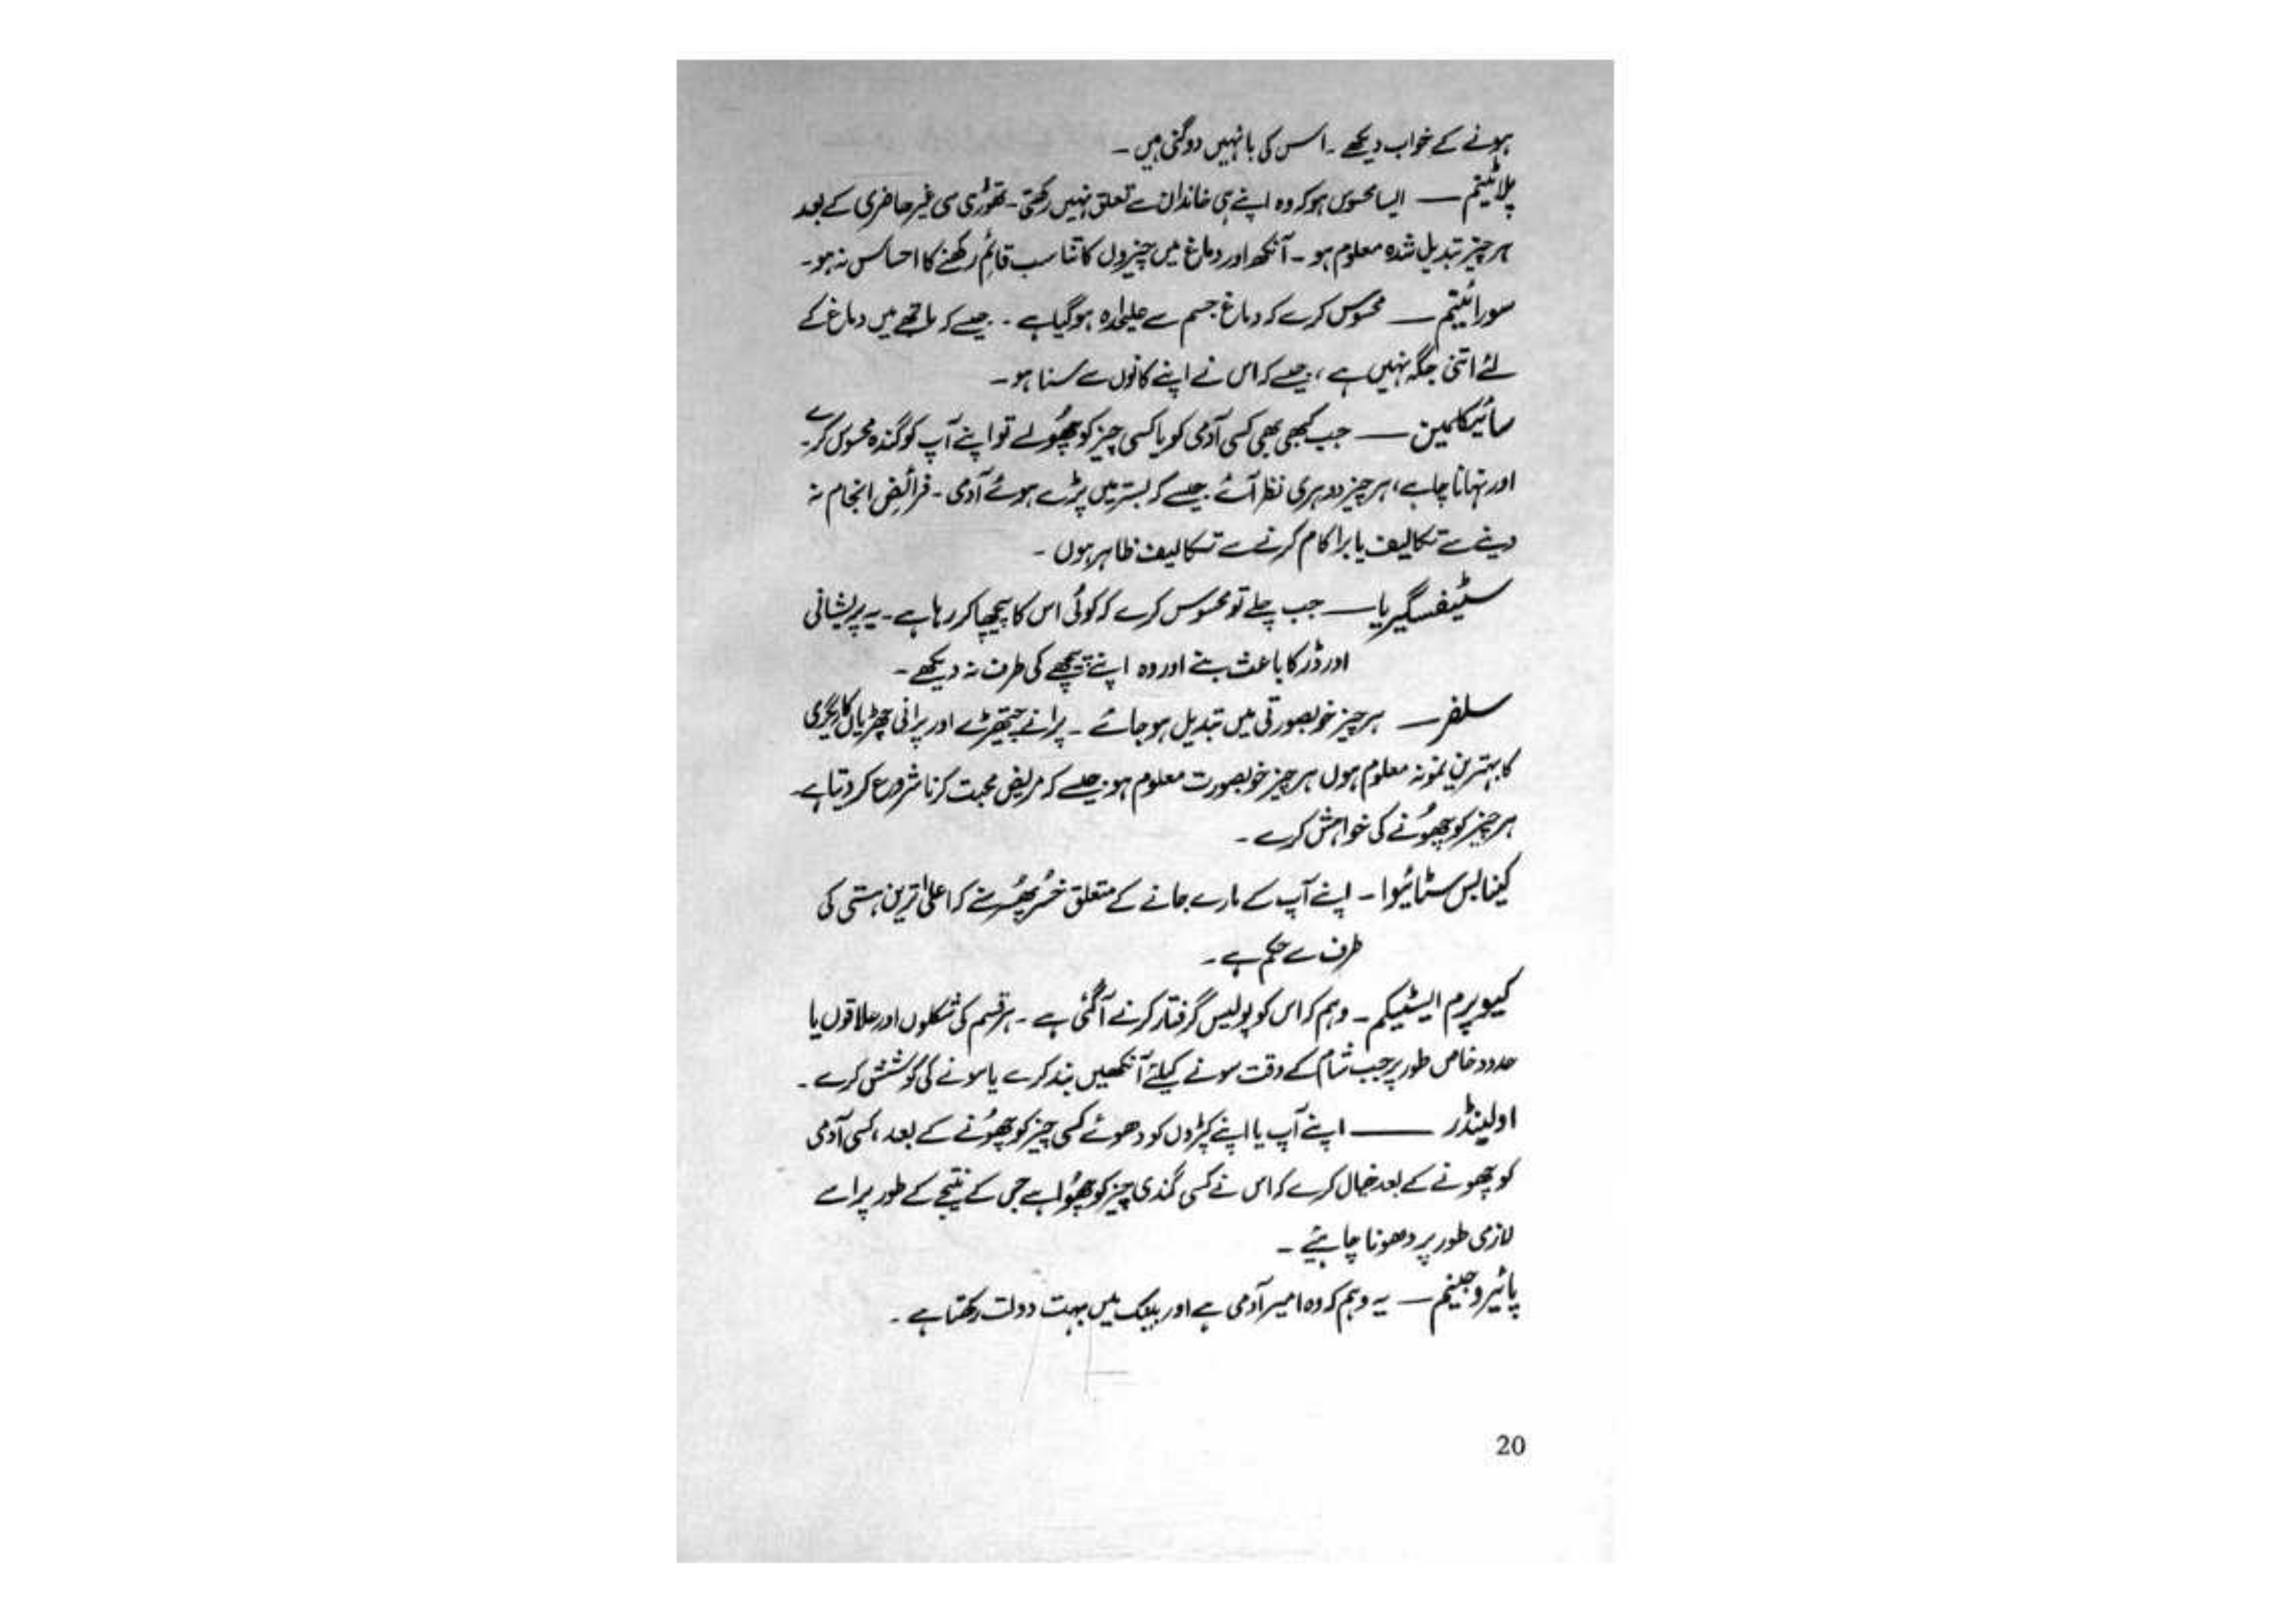 ہونے کے خواب دیکھے ۔ اس کی بانہیں دوگنی ہیں ۔
پلاٹینم ـــ ایسا محسوس ہو کہ وہ اپنے ہی خاندان سے تعلق نہیں رکھتی ۔ تھوڑی سی غیر حاضری کے بعد
ہر چیز تبدیل شدہ معلوم ہو ۔ آنکھ اور دماغ میں چیزوں کا تناسب قائم رکھنے کا احساس نہ ہو ۔
سورائینم ـــ محسوس کرے کہ دماغ جسم سے علیحدہ ہو گیا ہے ۔ جیسے کہ ماتھے میں دماغ کے
لئے اتنی جگہ نہیں ہے ، جیسے کہ اس نے اپنے کانوں سے سنا ہو ۔
سائیکلمین ـــ جب کبھی بھی کسی آدمی کو یا کسی چیز کو چھُولے تو اپنے آپ کو گندہ محسوس کرے ۔
اور نہانا چاہے ، ہر چیز دوہری نظر آئے جیسے کہ بستر میں پڑے ہوئے آدمی ۔ فرائض انجام نہ
دینے سے تکالیف یا برا کام کرنے سے تکالیف ظاہر ہوں ۔
سٹیفسگیریا ـــ جب چلے تو محسوس کرے کہ کوئی اس کا پیچھا کر رہا ہے ۔ یہ پریشانی
اور ڈر کا باعث بنے اور وہ اپنے پیچھے کی طرف نہ دیکھے ۔
سلفر ـــ ہر چیز خوبصورتی میں تبدیل ہو جائے ۔ پرانے چیتھڑے اور پرانی چھڑیاں کاریگری
کا بہترین نمونہ معلوم ہوں ہر چیز خوبصورت معلوم ہو جیسے کہ مریض محبت کرنا شروع کر دیتا ہے ۔
ہر چیز کو چھُونے کی خواہش کرے ۔
کینابس سٹائیوا ۔ اپنے آپ کے مارے جانے کے متعلق خُسرپھُسر سنے کہ اعلیٰ ترین ہستی کی
طرف سے حکم ہے ۔
کیوپرم ایسٹیکم ۔ وہم کہ اس کو پولیس گرفتار کرنے آ گئی ہے ۔ ہر قسم کی شکلوں اور علاقوں یا
حدود خاص طور پر جب شام کے وقت سونے کیلئے آنکھیں بند کرے یا سونے کی کوشش کرے ۔
اولینڈر ـــ اپنے آپ یا اپنے کپڑوں کو دھوئے کسی چیز کو چھُونے کے بعد ، کسی آدمی
کو چھونے کے بعد خیال کرے کہ اس نے کسی گندی چیز کو چھُوا ہے جس کے نتیجے کے طور پر اسے
لازمی طور پر دھونا چاہیئے ۔
پائیروجینم ـــ یہ وہم کہ وہ امیر آدمی ہے اور بینک میں بہت دولت رکھتا ہے ۔
20